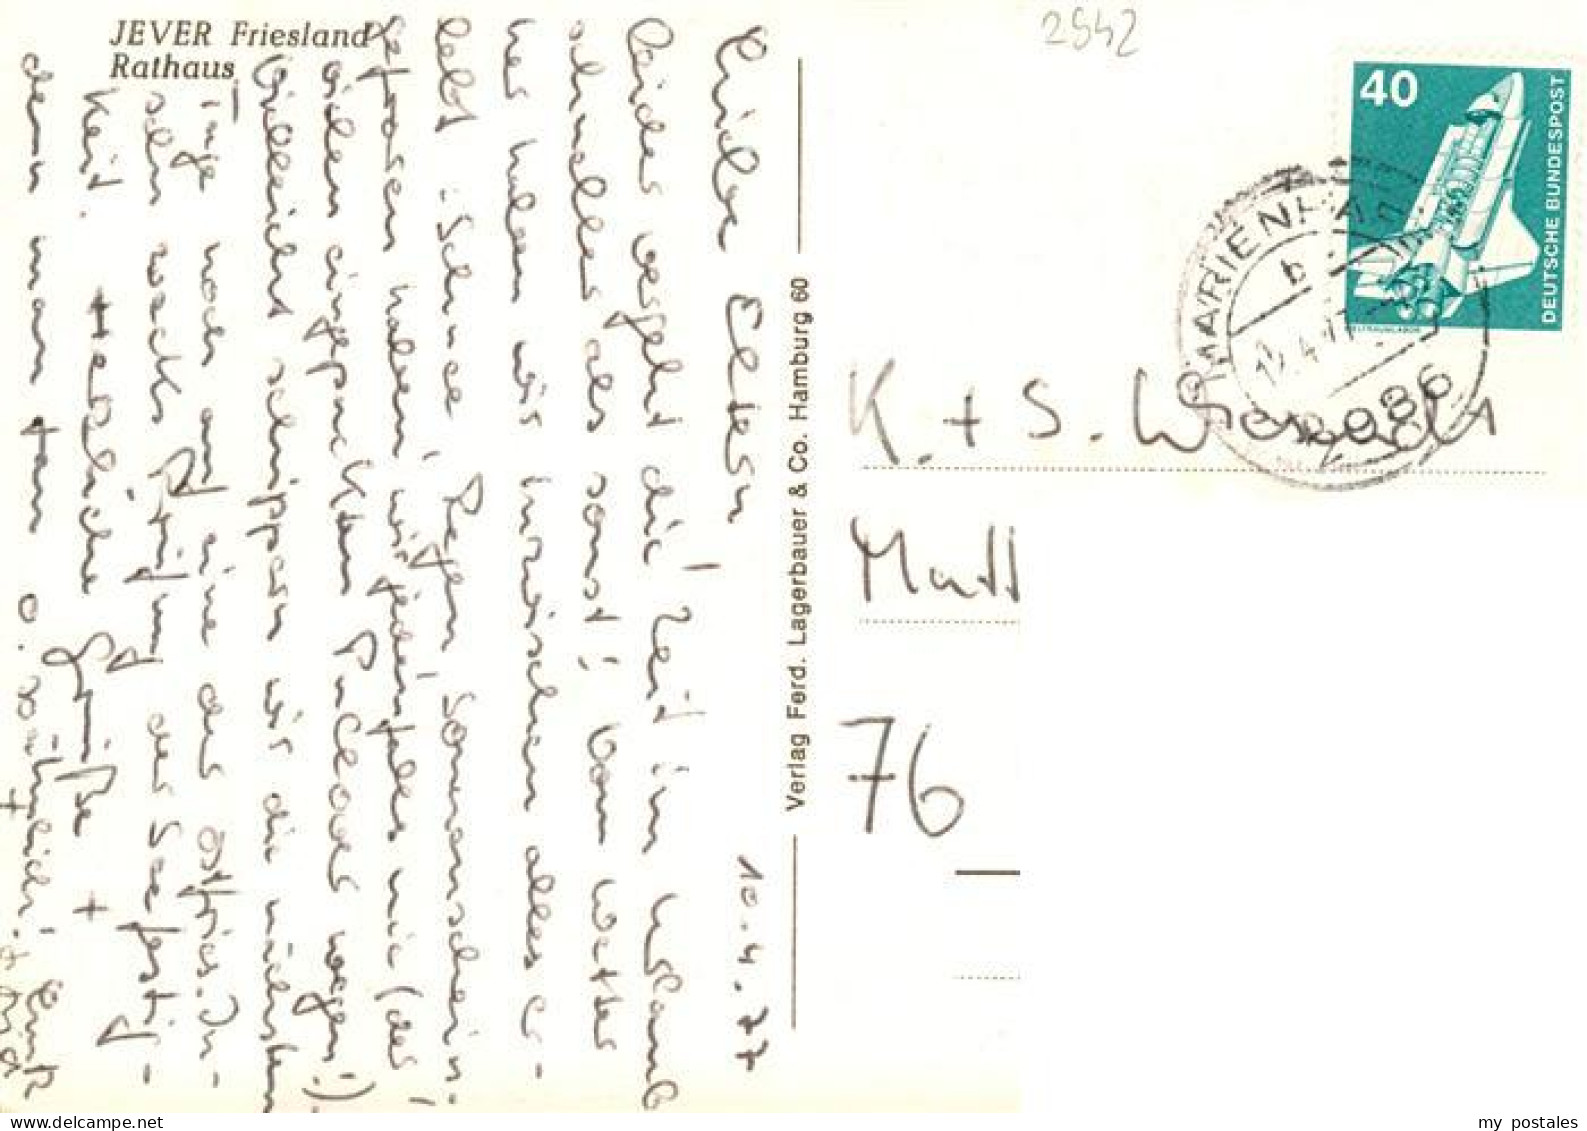 JEVER Friesland
Rathaus
10.4.77
Liebe Eltern!
Leider vergeht die Zeit im Urlaub
schneller als sonst! Vom Wetter
her haben wir inzwischen alles er-
lebt: Schnee, Regen, Sonnenschein:
gefroren haben wir jedenfalls nie (der
vielen eingepackten Pullover wegen!).
Vielleicht schippern wir die nächsten
Tage noch auf eine der ostfries. In-
seln zwecks Prüfung der Seefestig-
keit. Herzliche Grüße +
denn man tau o. rühlich!
Verlag Ferd. Lagerbauer & Co. Hamburg 60
2542
40
DEUTSCHE BUNDESPOST
WELTRAUMLABOR
MARIENHA
b
12.4.77
8986
K. + S.
76
www.delcampe.net
my postales